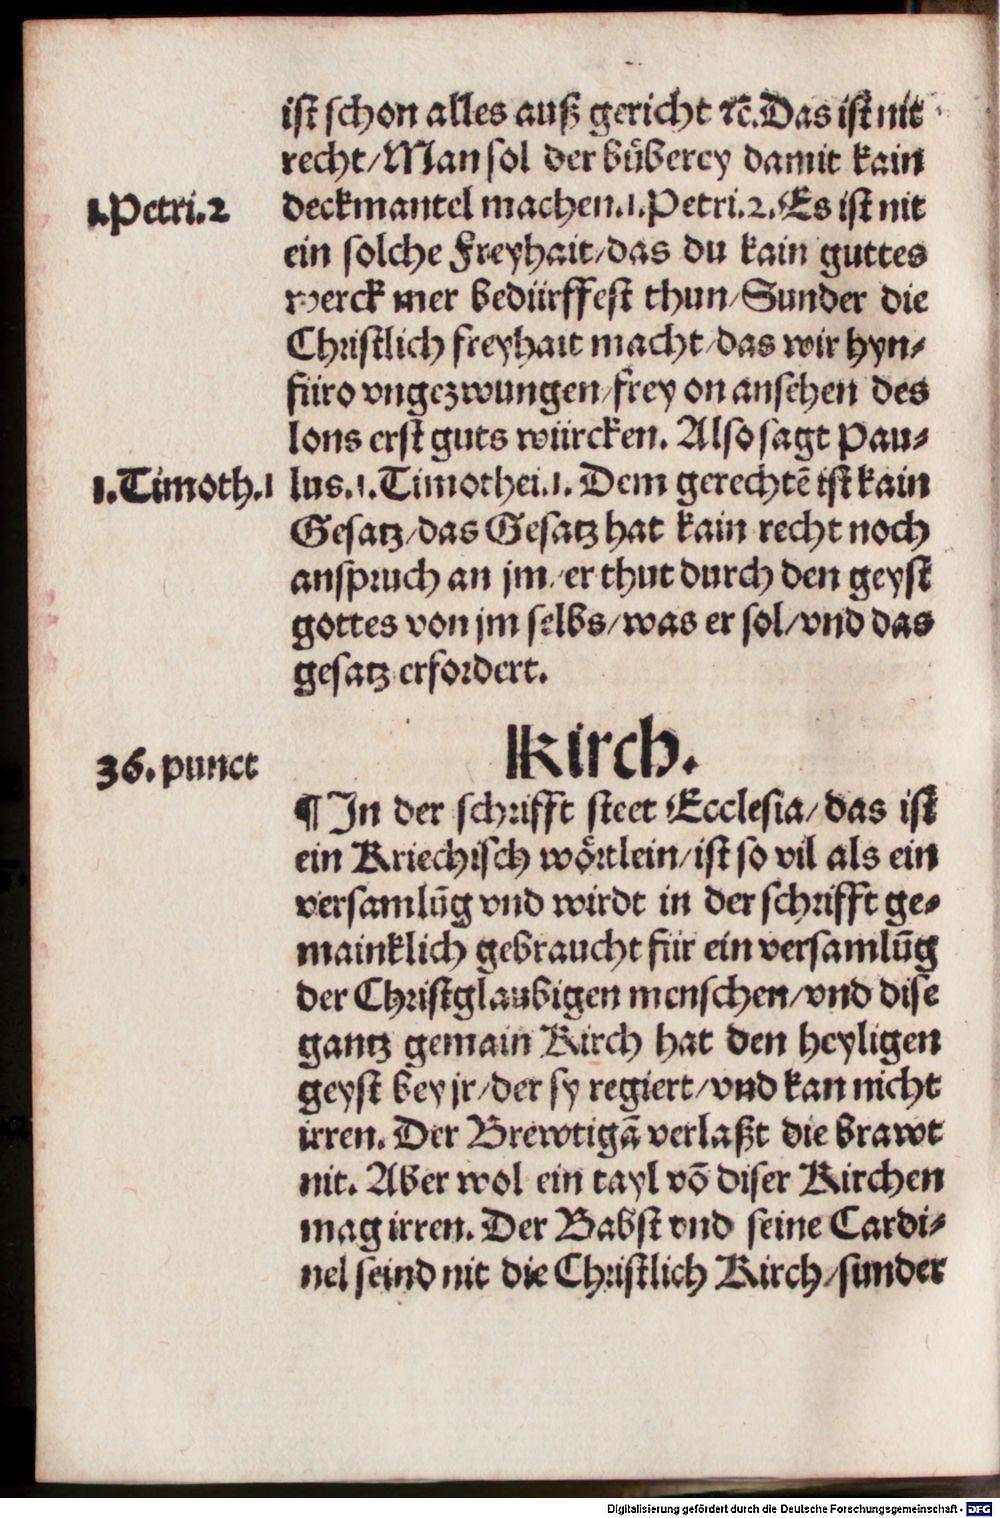 ist schon alles auß gericht ꝛc̄. Das ist nit
recht/ Man sol der bůberey damit kain
1.Petri.2 deckmantel machen.1.Petri.2. Es ist nit
ein solche Freyhait/das du kain guttes
werck mer bedürffest thun/Sunder die
Christlich freyhait macht/das wir hyn⸗
füro vngezwungen/frey on ansehen des
lons erst guts würcken. Also sagt Pau⸗
1.Timoth.1 lus.1.Timothei.1. Dem gerechtē ist kain
Gesatz/das Gesatz hat kain recht noch
anspruch an jm/er thut durch den geyst
gottes von jm selbs/was er sol/vnd das
gesatz erfordert.
Kirch.
36.punct
¶ In der schrifft steet Ecclesia/das ist
ein Kriechisch wörtlein/ist so vil als ein
versamlūg vnd wirdt in der schrifft ge⸗
mainklich gebraucht für ein versamlūg
der Christglaubigen menschen/vnd dise
gantz gemain Kirch hat den heyligen
geyst bey jr/der sy regiert/vnd kan nicht
irren. Der Brewtigā verlaßt die brawt
nit. Aber wol ein tayl vō diser Kirchen
mag irren. Der Babst vnd seine Cardi⸗
nel seind nit die Christlich Kirch/sunder
Digitalisierung gefördert durch die Deutsche Forschungsgemeinschaft - DFG